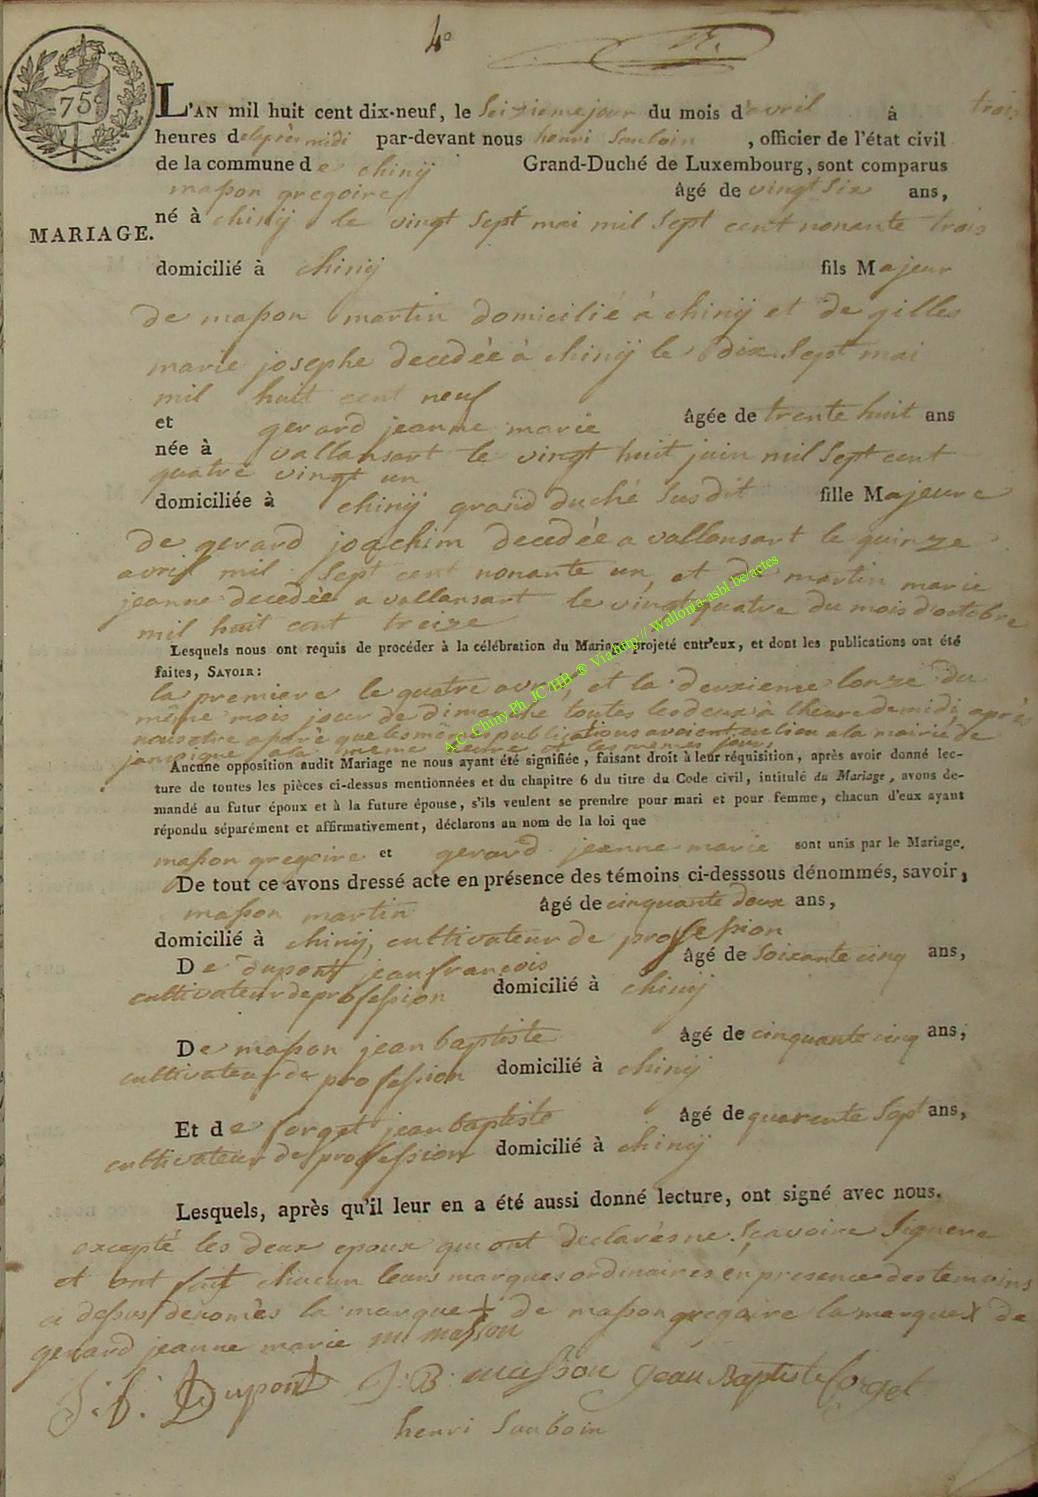 4°
75c
L'AN mil huit cent dix-neuf, le seizieme jour du mois d'avril à trois
heures de laprès midi par-devant nous henri Sauboin, officier de l'état civil
de la commune de chinÿ Grand-Duché de Luxembourg, sont comparus
masson gregoire âgé de vingt six ans,
MARIAGE.
né à chinÿ le vingt sept mai mil sept cent nonante trois
domicilié à chinÿ fils Majeur
de masson martin domicilié à chinÿ et de gilles
marie josephe decedée à chinÿ le dix sept mai
mil huit cent neuf
et gerard jeanne marie âgée de trente huit ans
née à vallansart le vingt huit juin mil sept cent
quatre vingt un
domiciliée à chinÿ grand duché susdit fille Majeure
de gerard joachim decedée a vallansart le quinze
avril mil sept cent nonante un, et de martin marie
jeanne decedée a vallansart le vingt quatre du mois d'octobre
mil huit cent treize
Lesquels nous ont requis de procéder à la célébration du Mariage projeté entr'eux, et dont les publications ont été
faites, SAVOIR:
la premiere le quatre avril, et la deuxieme lonze du
même mois jour de dimanche toutes les deux à lheure de midi, après
nous être que les même publications avaient eu lieu a la mairie de
jamoigne a la meme heure et les memes jours,
Aucune opposition audit Mariage ne nous ayant été signifiée, faisant droit à leur réquisition, après avoir donné lec-
ture de toutes les pièces ci-dessus mentionnées et du chapitre 6 du titre du Code civil, intitulé du Mariage, avons de-
mandé au futur époux et à la future épouse, s'ils veulent se prendre pour mari et pour femme, chacun d'eux ayant
répondu séparément et affirmativement, déclarons au nom de la loi que
masson gregoire et gerard jeanne marie sont unis par le Mariage.
De tout ce avons dressé acte en présence des témoins ci-desssous dénommés, savoir,
masson martin âgé de cinquante deux ans,
domicilié à chinÿ, cultivateur de profession
De dupont jean françois âgé de soixante cinq ans,
cultivateur de profession domicilié à chinÿ
De masson jean baptiste âgé de cinquante cinq ans,
cultivateur de profession domicilié à chinÿ
Et de forget jean baptiste âgé de quarente sept ans,
cultivateur de profession domicilié à chinÿ
Lesquels, après qu'il leur en a été aussi donné lecture, ont signé avec nous.
excepté les deux epoux qui ont declarés ne sçavoire signere
et ont fait chacun leurs marques ordinaires en presence des temoins
ci dessus denomès la marque + de masson gregoire la marque X de
gerard jeanne marie m masson
J. f. Dupont J. B. masson Jean Baptiste forget
henri Sauboin
A.C. Chiny Ph. JC/HB ® Via http://Wallonia-asbl.be/actes